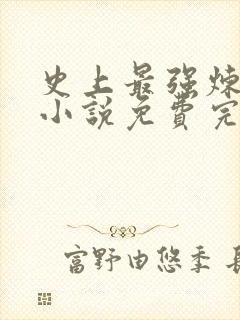 史上最强炼
小说免费完
富野由悠季